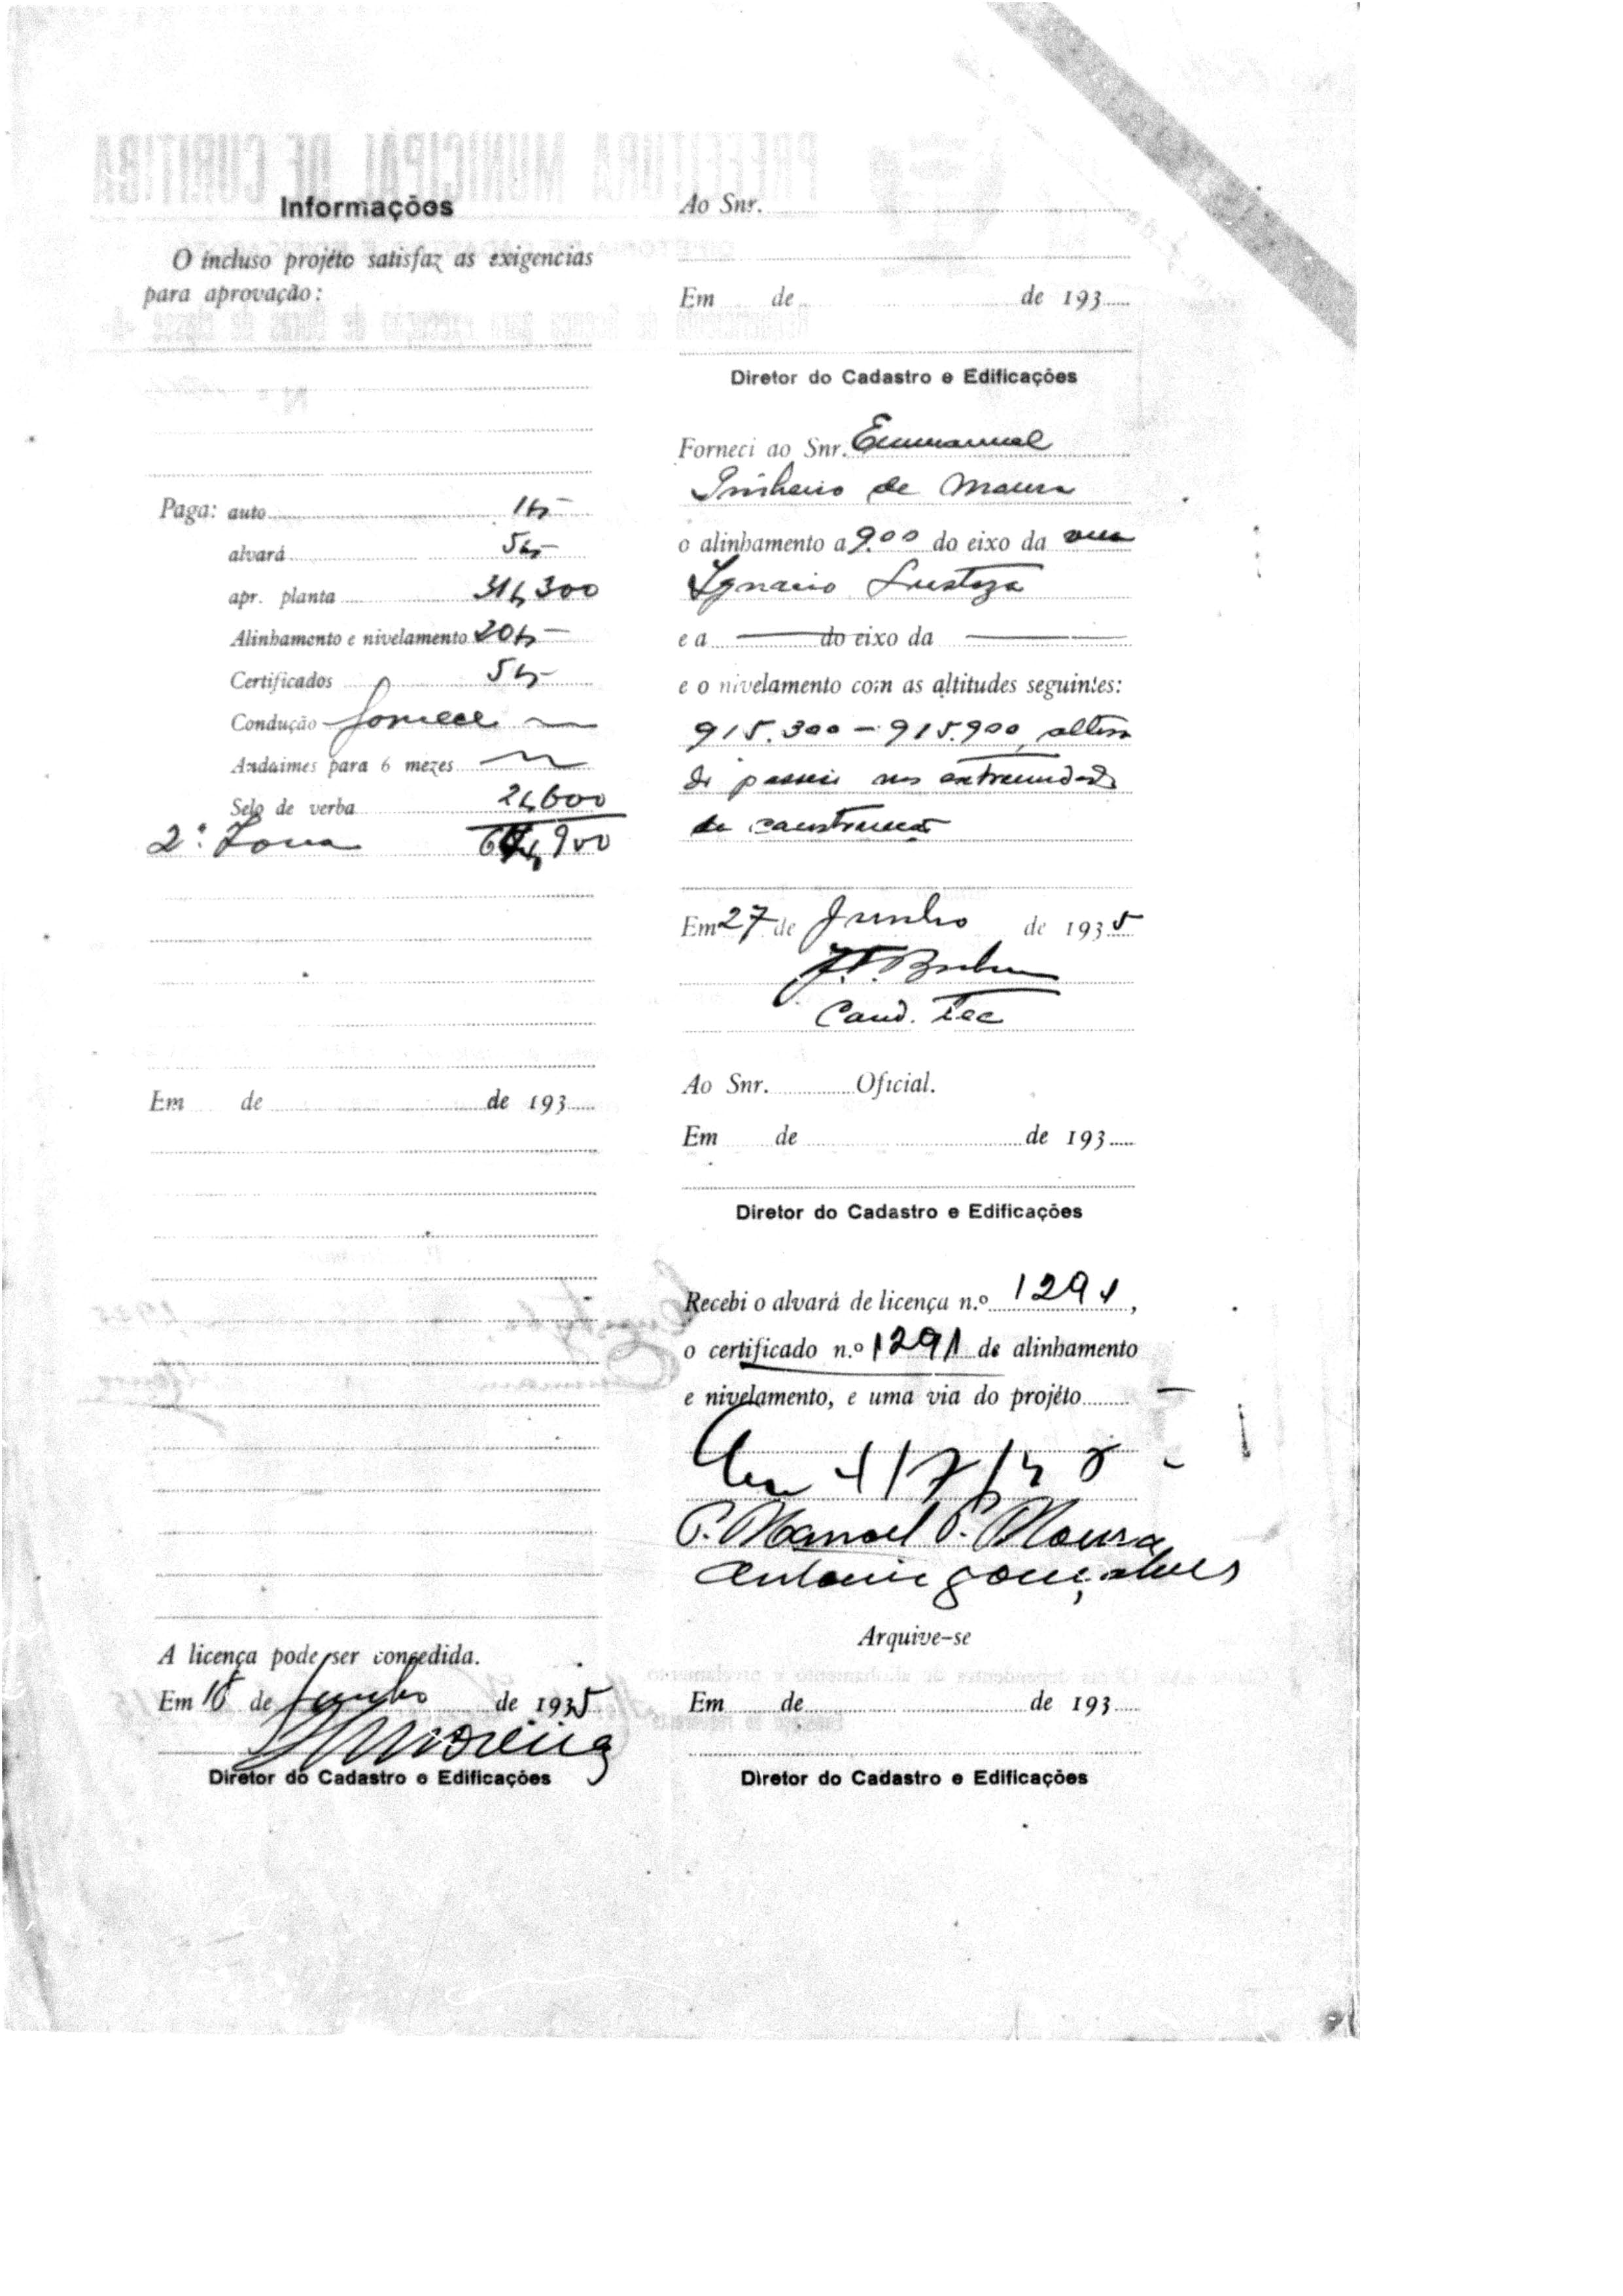 Informações
O incluso projéto satisfaz as exigencias
para aprovação:
Paga: auto 1$—
alvará 5$—
apr. planta 31$300
Alinhamento e nivelamento 20$—
Certificados 5$—
Condução fornece —
Andaimes para 6 mezes
Selo de verba 2$600
2ª Zona 64$900
Em de de 193
A licença pode ser concedida.
Em 18 de Junho de 1935
Diretor do Cadastro e Edificações
Ao Snr.
Em de de 193
Diretor do Cadastro e Edificações
Forneci ao Snr. Emmanuel
Pinheiro de Moura
o alinhamento a 9.00 do eixo da rua
Ignacio Lustoza
e a — do eixo da —
e o nivelamento com as altitudes seguintes:
915.300 - 915.900, altura
do passeio nas extremidades
da construcção
Em 27 de Junho de 1935
Cond. Tec
Ao Snr. Oficial.
Em de de 193
Diretor do Cadastro e Edificações
Recebi o alvará de licença n.º 1291,
o certificado n.º 1291 de alinhamento
e nivelamento, e uma via do projéto
Em 4/7/35
P. Manoel P. Moura
Antonio Gonçalves
Arquive-se
Em de de 193
Diretor do Cadastro e Edificações